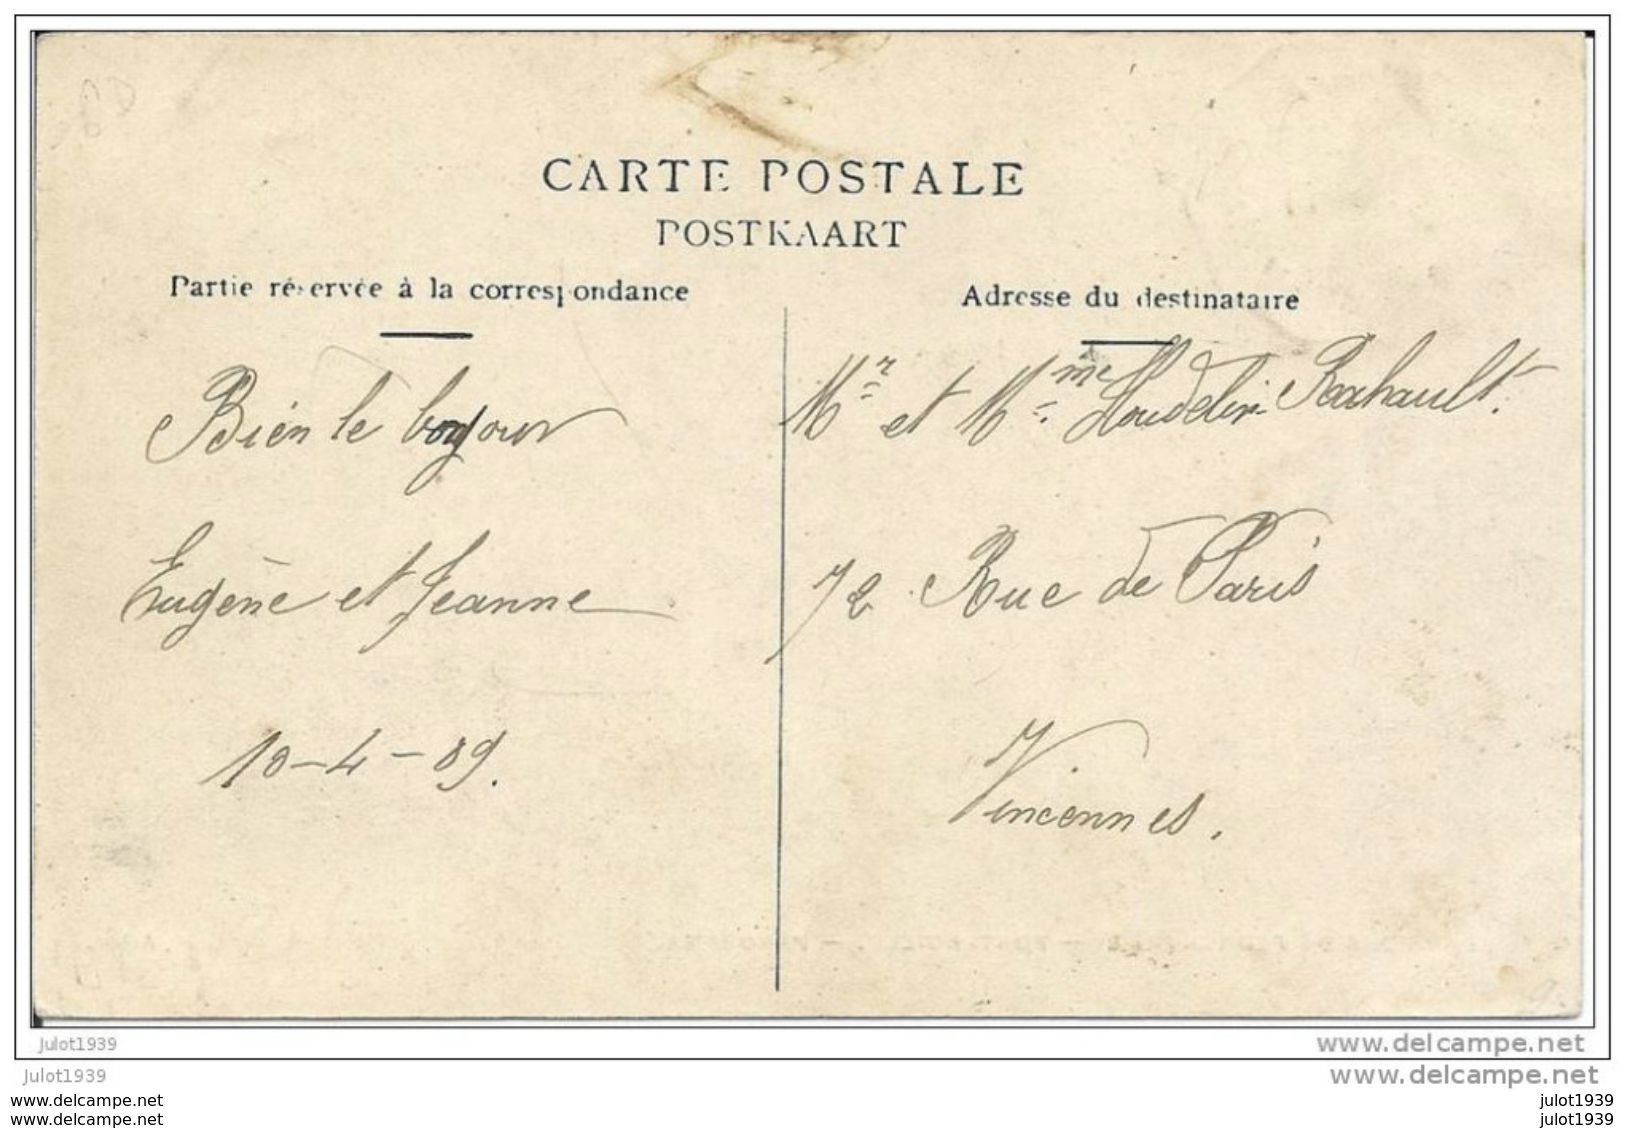 CARTE POSTALE
POSTKAART
Partie réservée à la correspondance
Adresse du destinataire
Bien le bonjour
Eugène et Jeanne
10-4-09.
Mr et Mme Houdelin Rochault.
72 Rue de Paris
Vincennes.
julot1939
www.delcampe.net
julot1939
www.delcampe.net
www.delcampe.net
julot1939
www.delcampe.net
julot1939